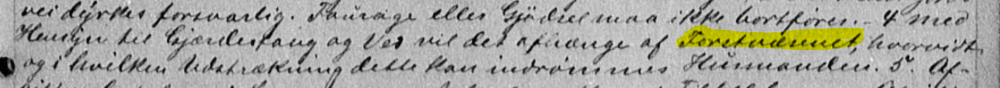 vei dyrkes forsvarlig. Fourage eller Gjødsel maa ikke bortføres. – 4 med
Hensyn til Gjærdesfang og Ved vil det afhænge af Forstvæsenet, hvorvidt
og i hvilken Udstrækning dette kan indrømmes Husmanden. 5. Af-